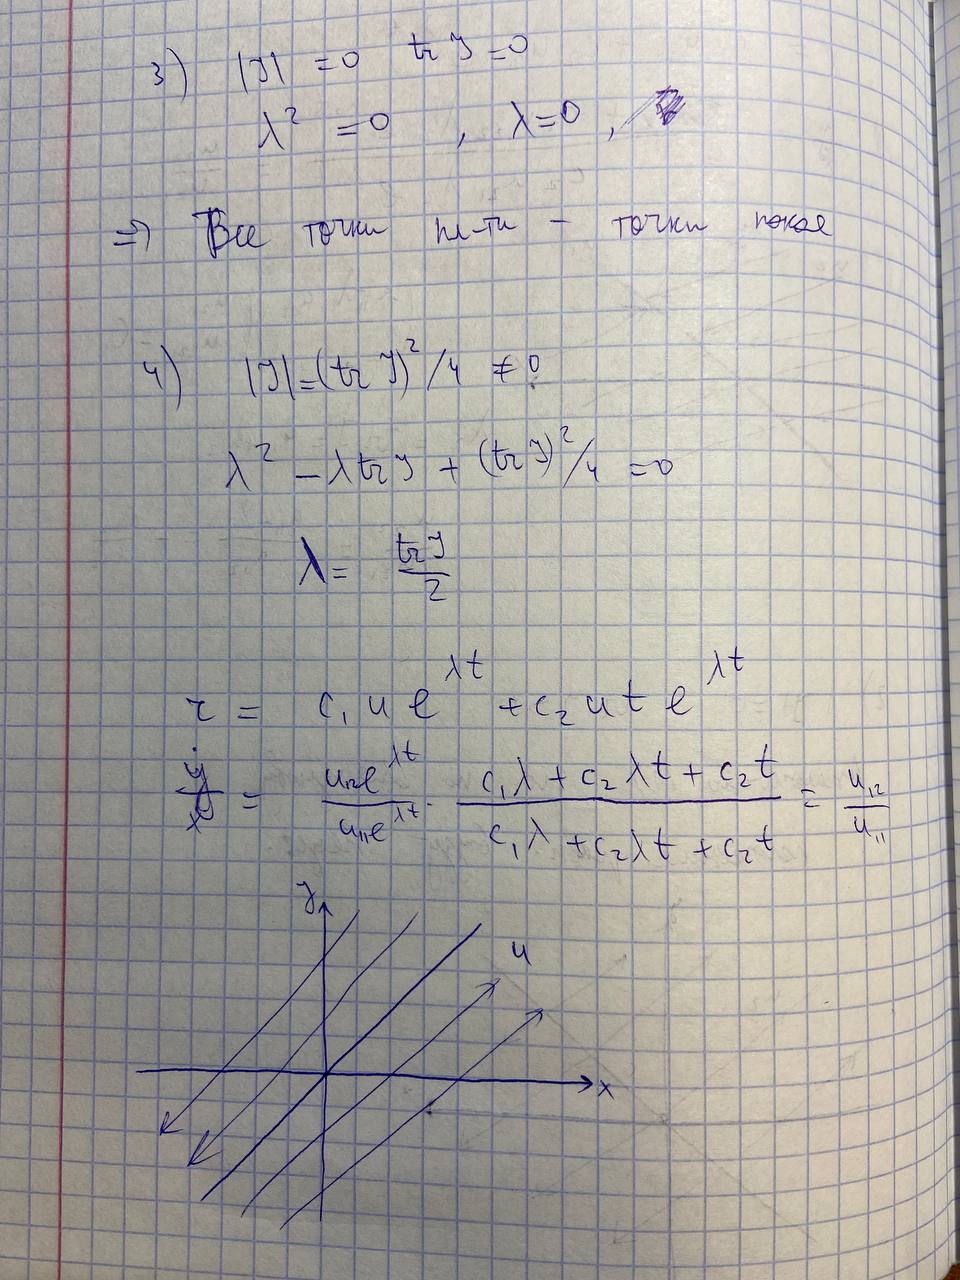 3) |J| = 0 tr J = 0
λ² = 0 , λ = 0 ,
⇒ Все точки пл-ти - точки покоя
4) |J| = (tr J)²/4 ≠ 0
λ² - λ tr J + (tr J)²/4 = 0
λ = tr J / 2
r = c₁ u e^{λt} + c₂ u t e^{λt}
ẏ/ẋ = (u₁₂e^{λt})/(u₁₁e^{λt}) · (c₁λ + c₂λt + c₂t)/(c₁λ + c₂λt + c₂t) = u₁₂/u₁₁
y
u
x